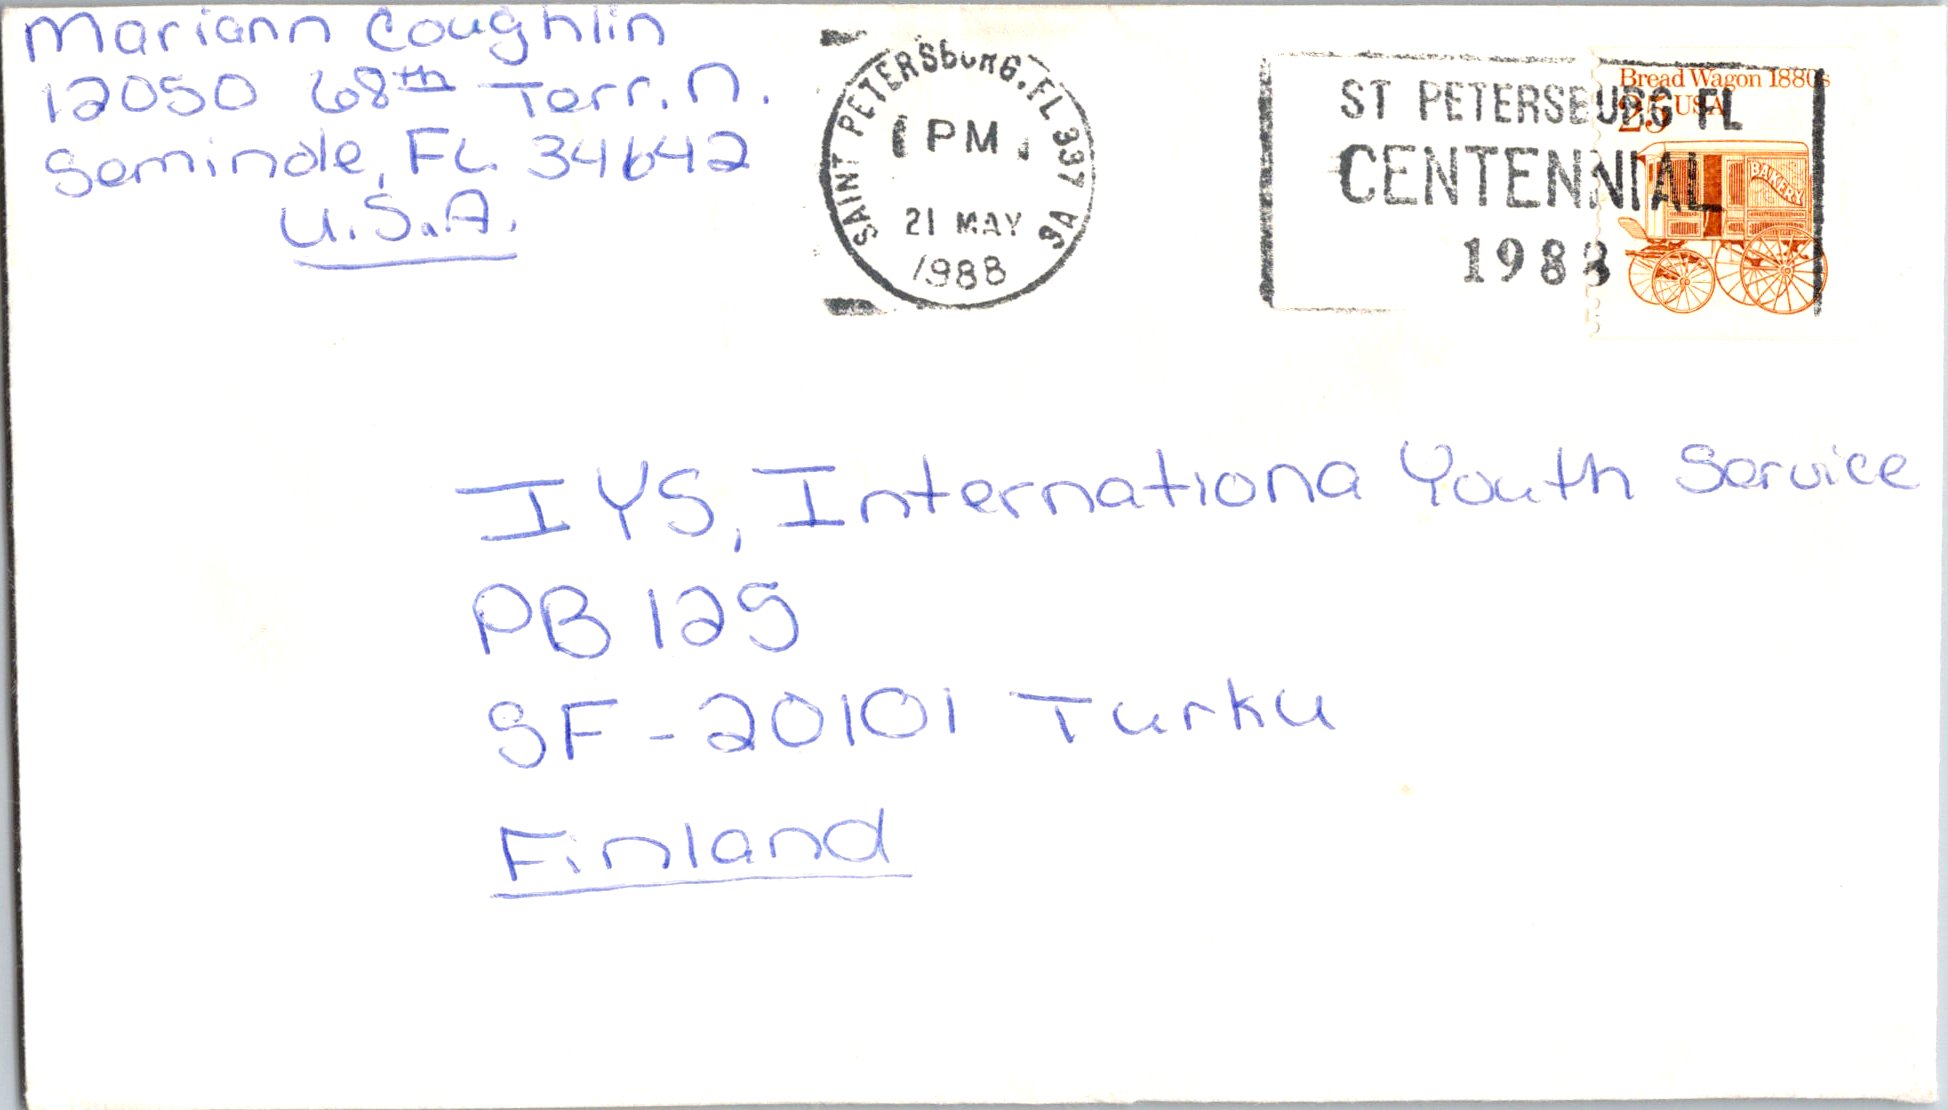 Mariann Coughlin
12050 68th Terr. N.
Seminole, FL. 34642
U.S.A.
SAINT PETERSBURG, FL 337
PM
21 MAY
1988
ST PETERSBURG FL
CENTENNIAL
1988
Bread Wagon 1880s
25 USA
BAKERY
IYS, Internationa Youth Service
PB 125
SF-20101 Turku
Finland